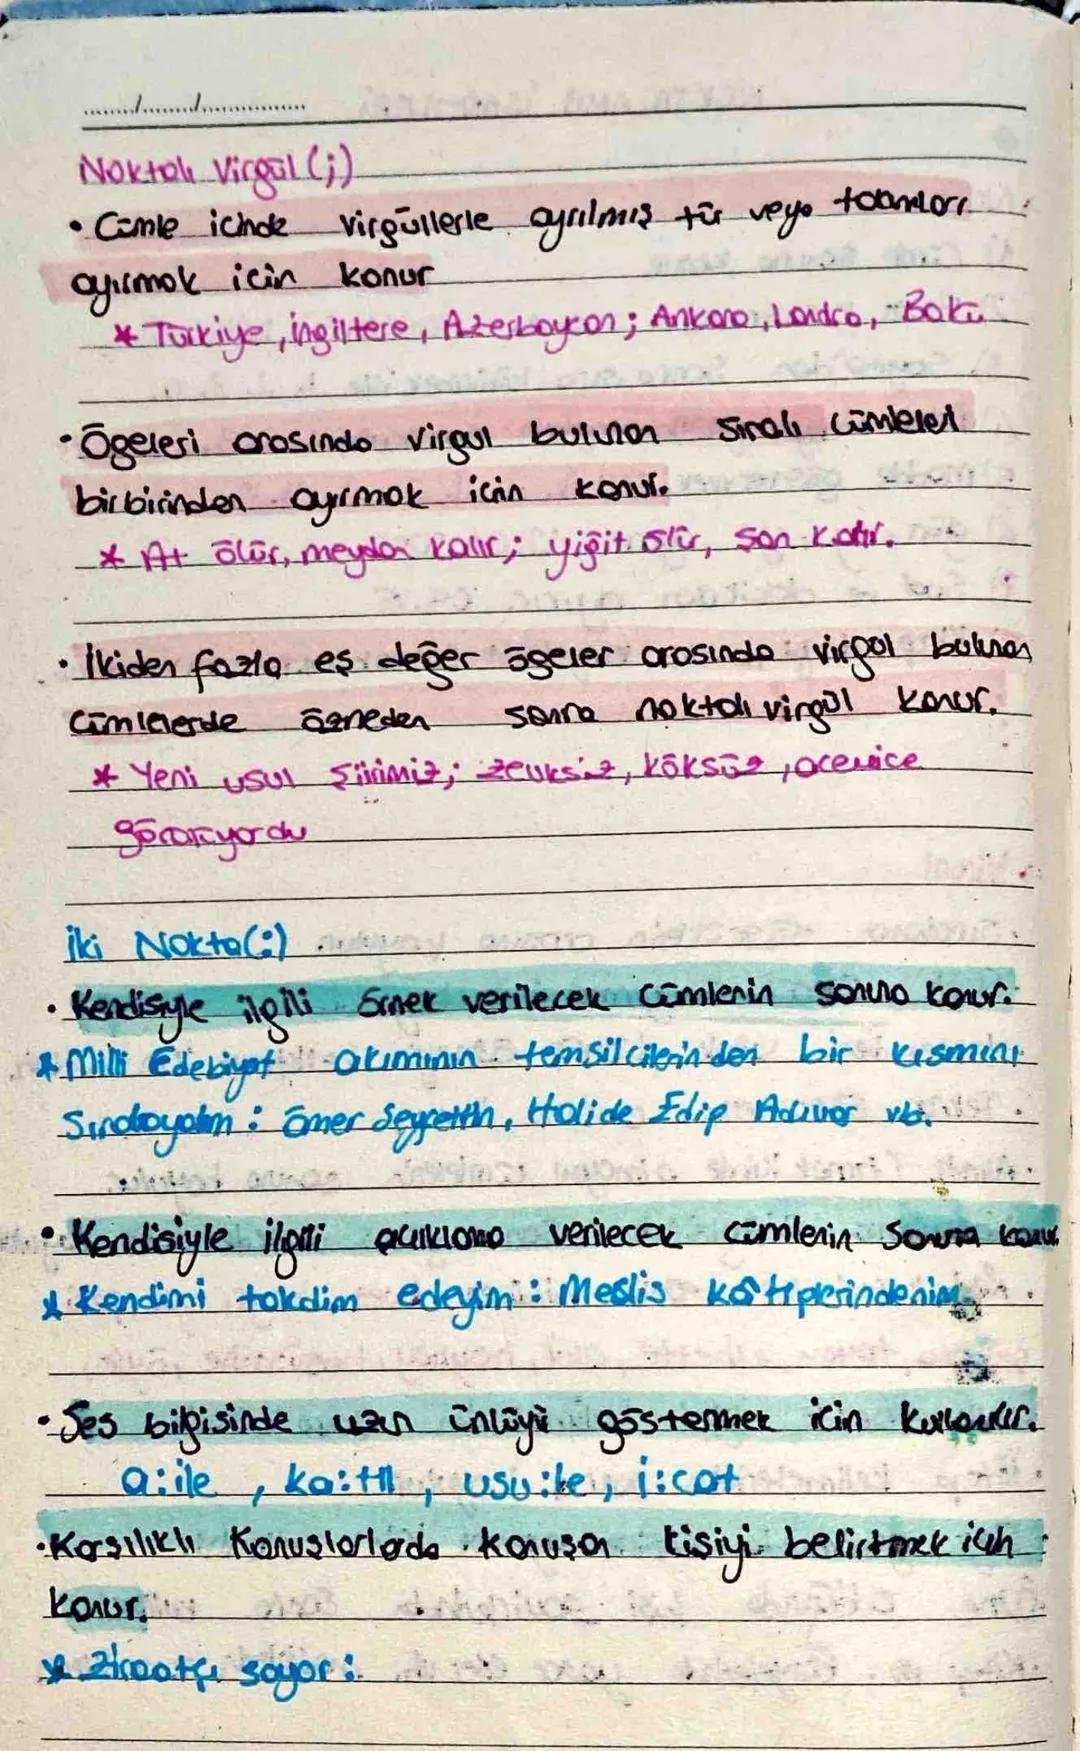 Noktalı Virgül (;)
• Cümle içinde virgüllerle ayrılmış tür veya takımları
ayırmak için konur
* Türkiye, İngiltere, Azerbaycan; Ankara, Londra, Bakü
• Ögeleri arasında virgül bulunan sıralı cümleleri
birbirinden ayırmak için konur.
* At ölür, meydan kalır; yiğit ölür, şan kalır.
• İkiden fazla eş değer ögeler arasında virgül bulunan
cümlelerde özneden sonra noktalı virgül konur.
* Yeni usul şiirimiz; zevksiz, köksüz, acemice
görünüyordu
İki Nokta(:)
• Kendisiyle ilgili örnek verilecek cümlenin sonuna konur.
* Milli Edebiyat akımının temsilcilerinden bir kısmını
Sıralayalım: Ömer Seyfettin, Halide Edip Adıvar vb.
• Kendisiyle ilgili açıklama verilecek cümlenin sonuna konur.
* Kendimi takdim edeyim: Meclis kâtiplerindenim.
• Ses bilgisinde uzun ünlüyü göstermek için kullanılır.
a:ile, ka:til, usu:le, i:cat
• Karşılıklı Konuşmalarda konuşan kişiyi belirtmek için
konur.